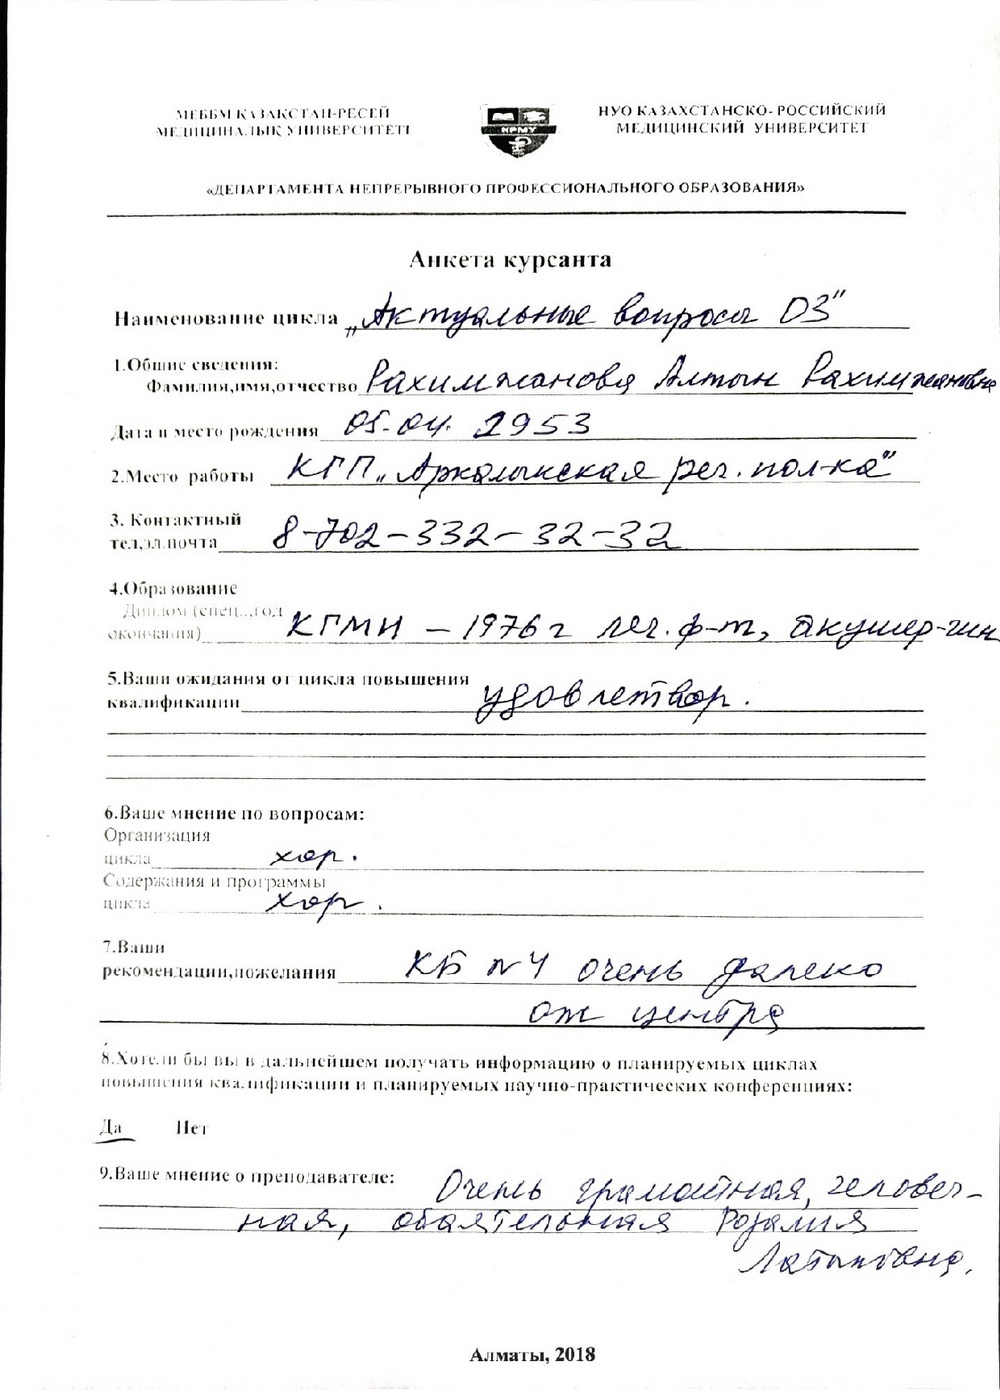 МЕББМ ҚАЗАҚСТАН-РЕСЕЙ
МЕДИЦИНАЛЫҚ УНИВЕРСИТЕТІ
КРМУ
НУО КАЗАХСТАНСКО- РОССИЙСКИЙ
МЕДИЦИНСКИЙ УНИВЕРСИТЕТ
«ДЕПАРТАМЕНТА НЕПРЕРЫВНОГО ПРОФЕССИОНАЛЬНОГО ОБРАЗОВАНИЯ»
Анкета курсанта
Наименование цикла „Актуальные вопросы ОЗ"
1.Общие сведения:
Фамилия,имя,отчество Рахимжанова Алтын Рахимжановна
Дата и место рождения 05.04. 1953
2.Место работы КГП „Аркалыкская рег. пол-ка"
3. Контактный
тел,эл.почта 8-702-332-32-32
4.Образование
Диплом (спец.,год
окончания) КГМИ – 1976 г леч. ф-т, акушер-гин
5.Ваши ожидания от цикла повышения
квалификации удовлетвор.
6.Ваше мнение по вопросам:
Организация
цикла хор.
Содержания и программы
цикла хор.
7.Ваши
рекомендации,пожелания КБ №4 очень далеко
от центра
8.Хотели бы вы в дальнейшем получать информацию о планируемых циклах
повышения квалификации и планируемых научно-практических конференциях:
Да Нет
9.Ваше мнение о преподавателе: Очень грамотная, человеч-
ная, обаятельная Розалия
Латыповна.
Алматы, 2018